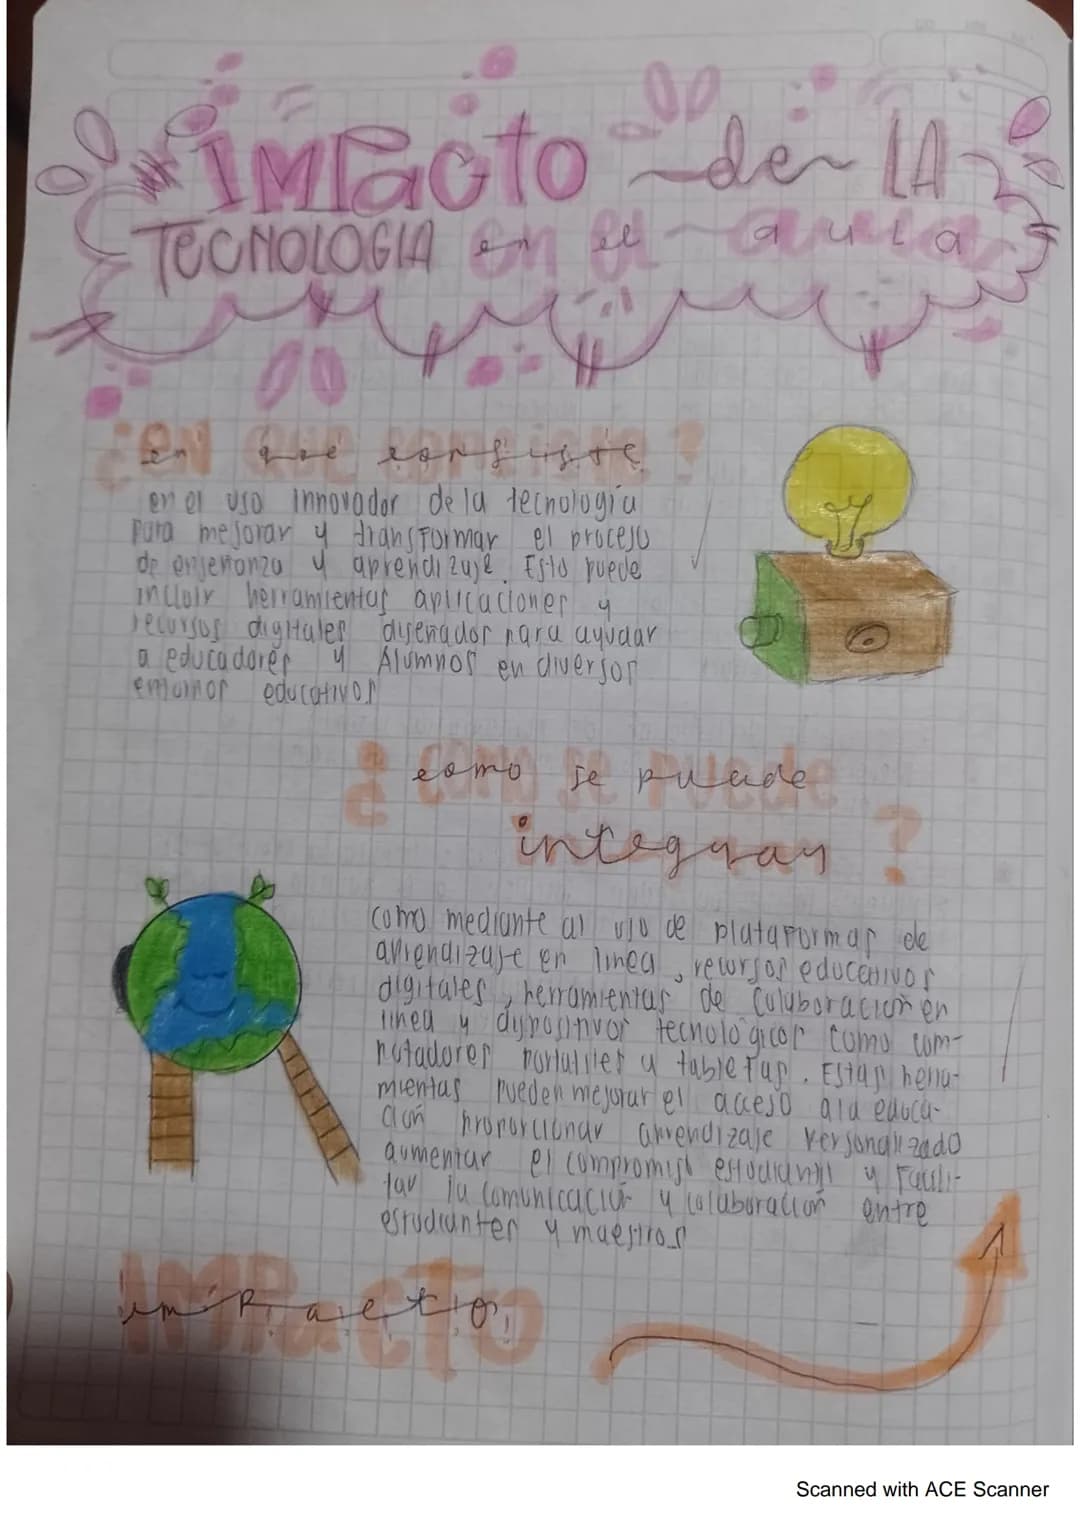 IMPacto de LA
TECNOLOGIA en el aula
¿en que consiste?
en el uso innovador de la tecnologia
para mejorar y transformar el proceso
de enseñanza y aprendizaje. Esto puede
incluir herramientas aplicaciones y
recursos digitales diseñador para ayudar
a educadores y Alumnos en diversos
entornos educativos
¿como se puede
integrar?
como mediante al uso de plataformas de
aprendizaje en linea, recursos educativos
digitales, herramientas de colaboracion en
linea y dispositivos tecnologicos como com-
putadores portatiles y tabletas. Estas herra-
mientas pueden mejorar el acceso ala educa-
cion proporcionar aprendizaje personalizado
aumentar el compromiso estudiantil y facili-
tar la comunicacion y colaboracion entre
estudiantes y maestros
impacto
Scanned with ACE Scanner